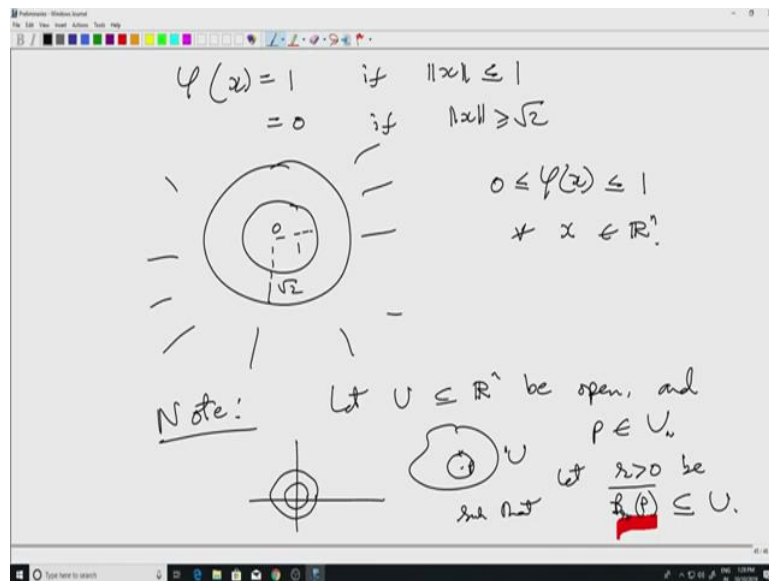 Preliminaries - Windows Journal
File Edit View Insert Actions Tools Help
φ(x) = 1 if ||x|| ≤ 1
= 0 if ||x|| ≥ √2
0 ≤ φ(x) ≤ 1
∀ x ∈ ℝⁿ.
0
1
√2
Note: Let U ⊆ ℝⁿ be open, and
p ∈ U.
p U
Let r>0 be
such that B_r(p) ⊆ U.
Type here to search